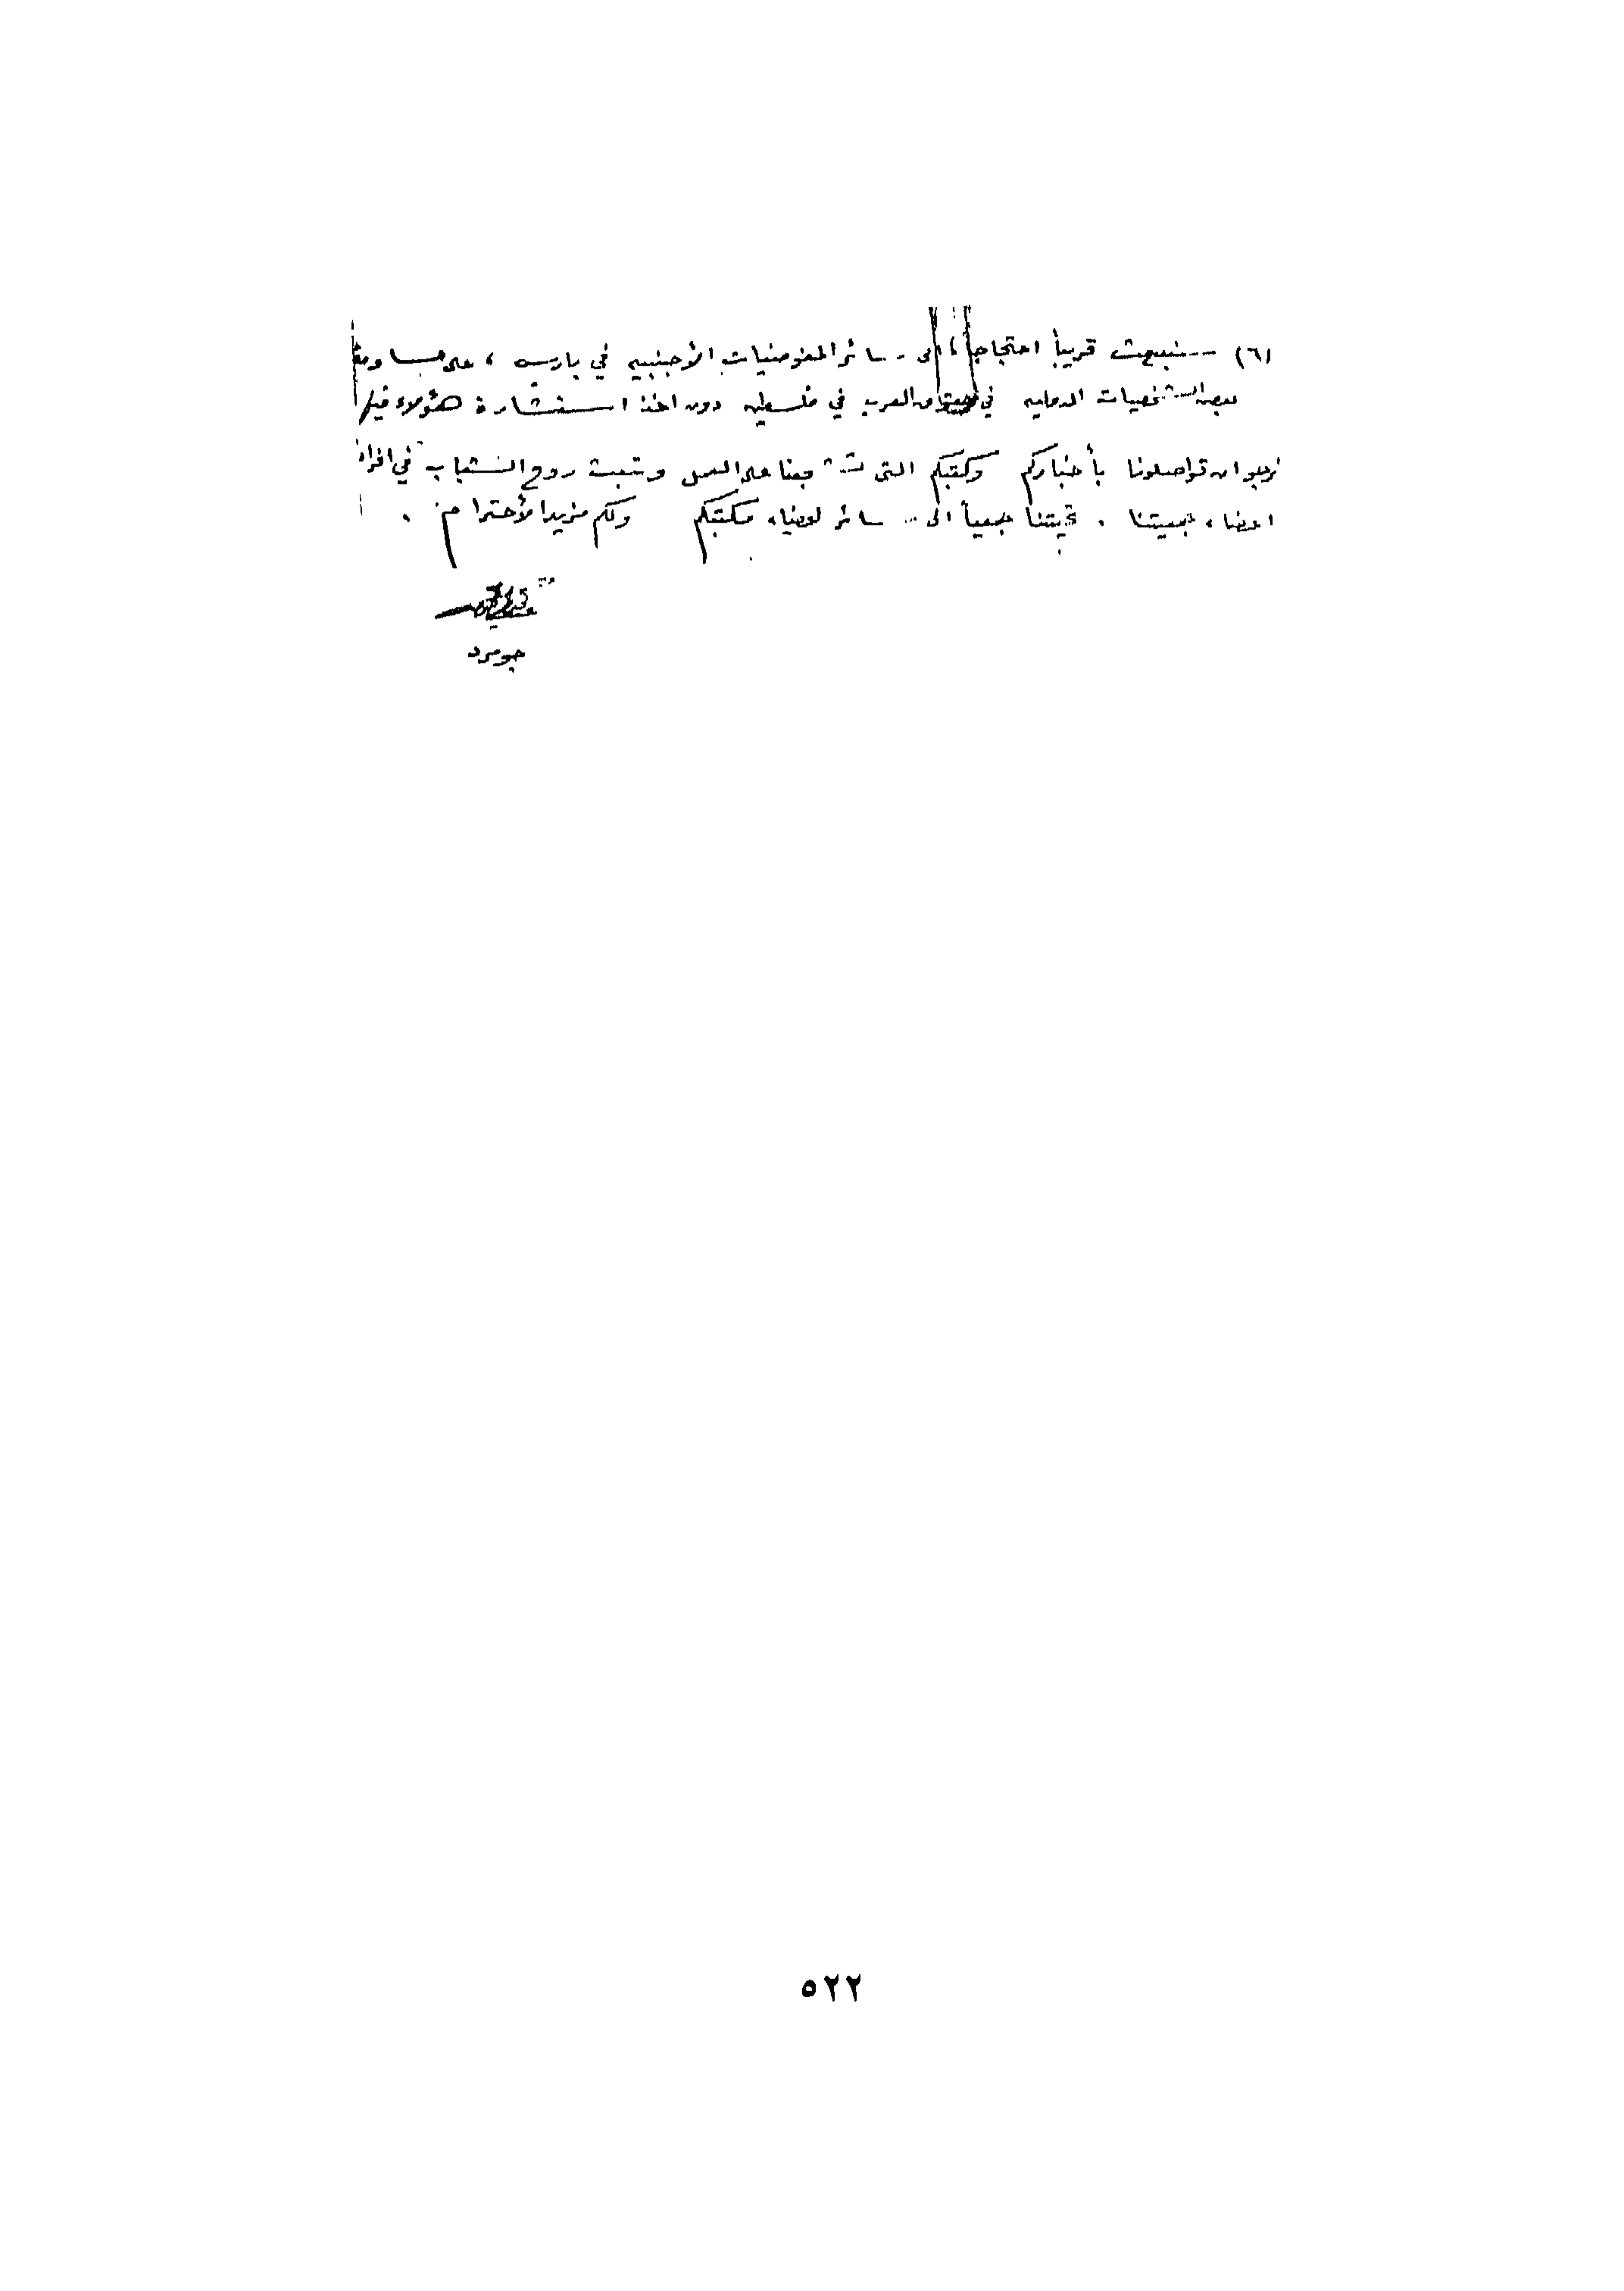 (٦) سنبعث قريباً احتجاجاً الى سائر المفوضيات الأجنبية في باريس ، على مساومة
بعض الشخصيات الدولية في حقوق العرب في فلسطين دون اخذ استشارة هؤلاء فيها
نرجو ان تواصلونا بأخباركم وكتبكم التي تشجعنا على العمل وتبعث روح الشباب في افراد
اعضاء جمعيتنا . تحيتنا جميعاً الى سائر اعضاء مكتبكم ولكم مزيد الأحترام .
جومرد
٥٢٢